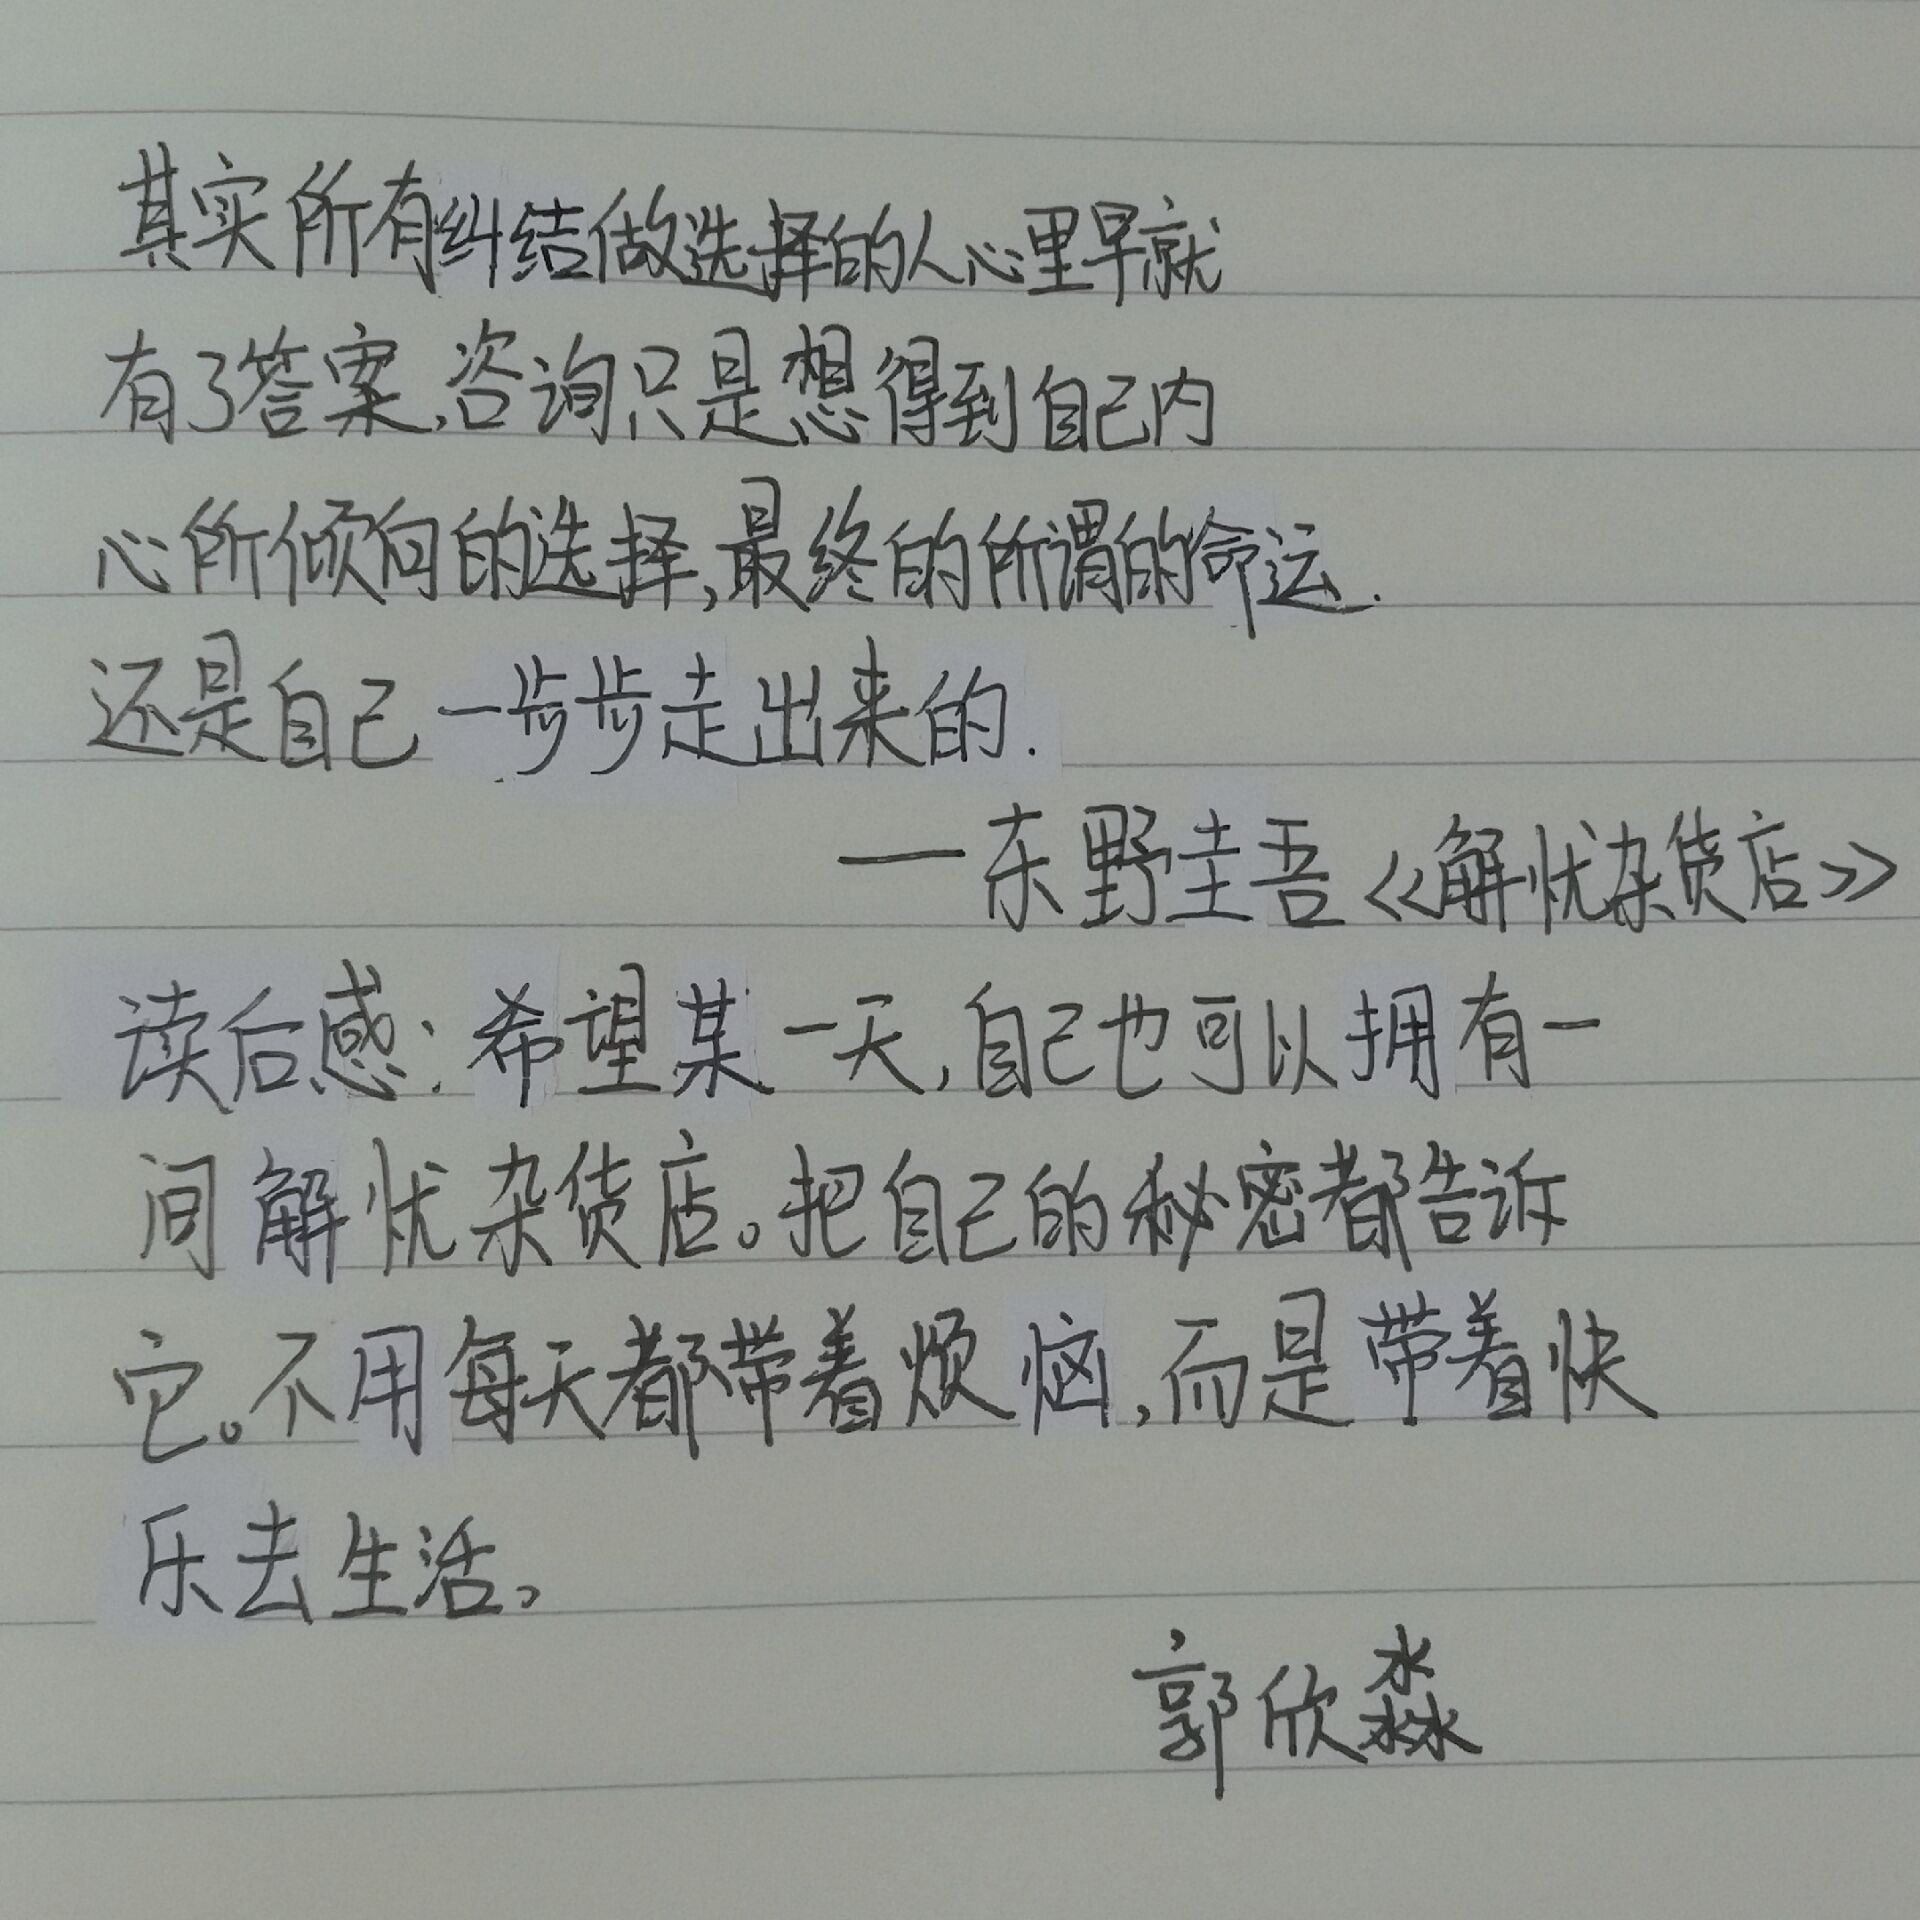 其实所有纠结做选择的人心里早就
有了答案,咨询只是想得到自己内
心所倾向的选择,最终的所谓的命运.
还是自己一步步走出来的.
—东野圭吾《解忧杂货店》
读后感:希望某一天,自己也可以拥有一
间解忧杂货店。把自己的秘密都告诉
它。不用每天都带着烦恼,而是带着快
乐去生活。
郭欣淼